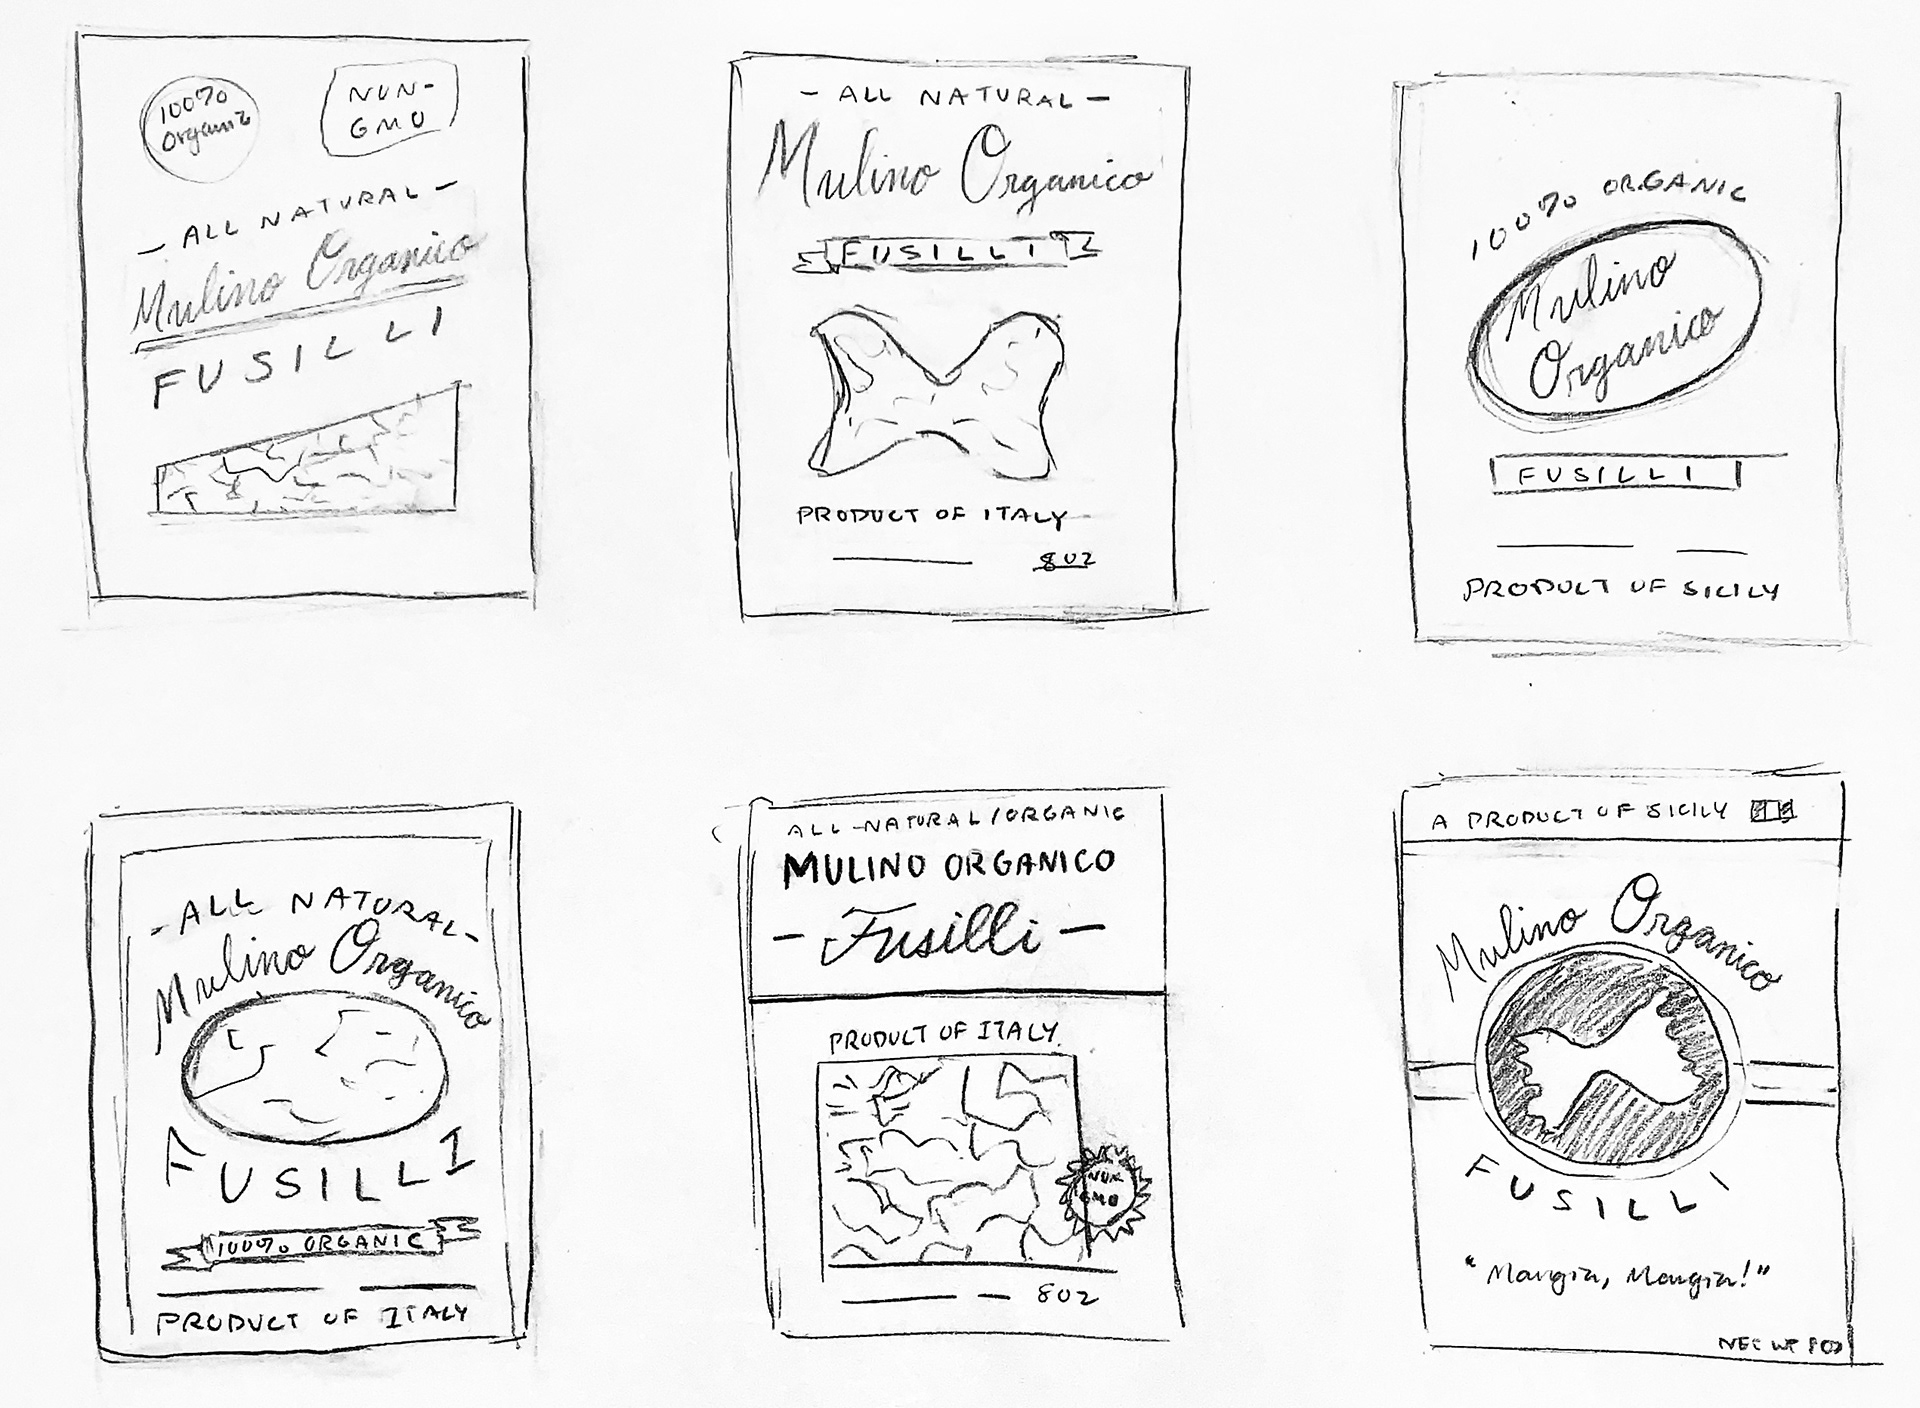 100%
Organic
NON-
GMO
- ALL NATURAL -
Mulino Organico
FUSILLI
- ALL NATURAL -
Mulino Organico
FUSILLI
PRODUCT OF ITALY
8OZ
100% ORGANIC
Mulino
Organico
FUSILLI
PRODUCT OF SICILY
- ALL NATURAL -
Mulino Organico
FUSILLI
100% ORGANIC
PRODUCT OF ITALY
ALL-NATURAL/ORGANIC
MULINO ORGANICO
- Fusilli -
PRODUCT OF ITALY
NON
GMO
8OZ
A PRODUCT OF SICILY
Mulino Organico
FUSILLI
"Mangia, Mangia!"
NET WT 8OZ